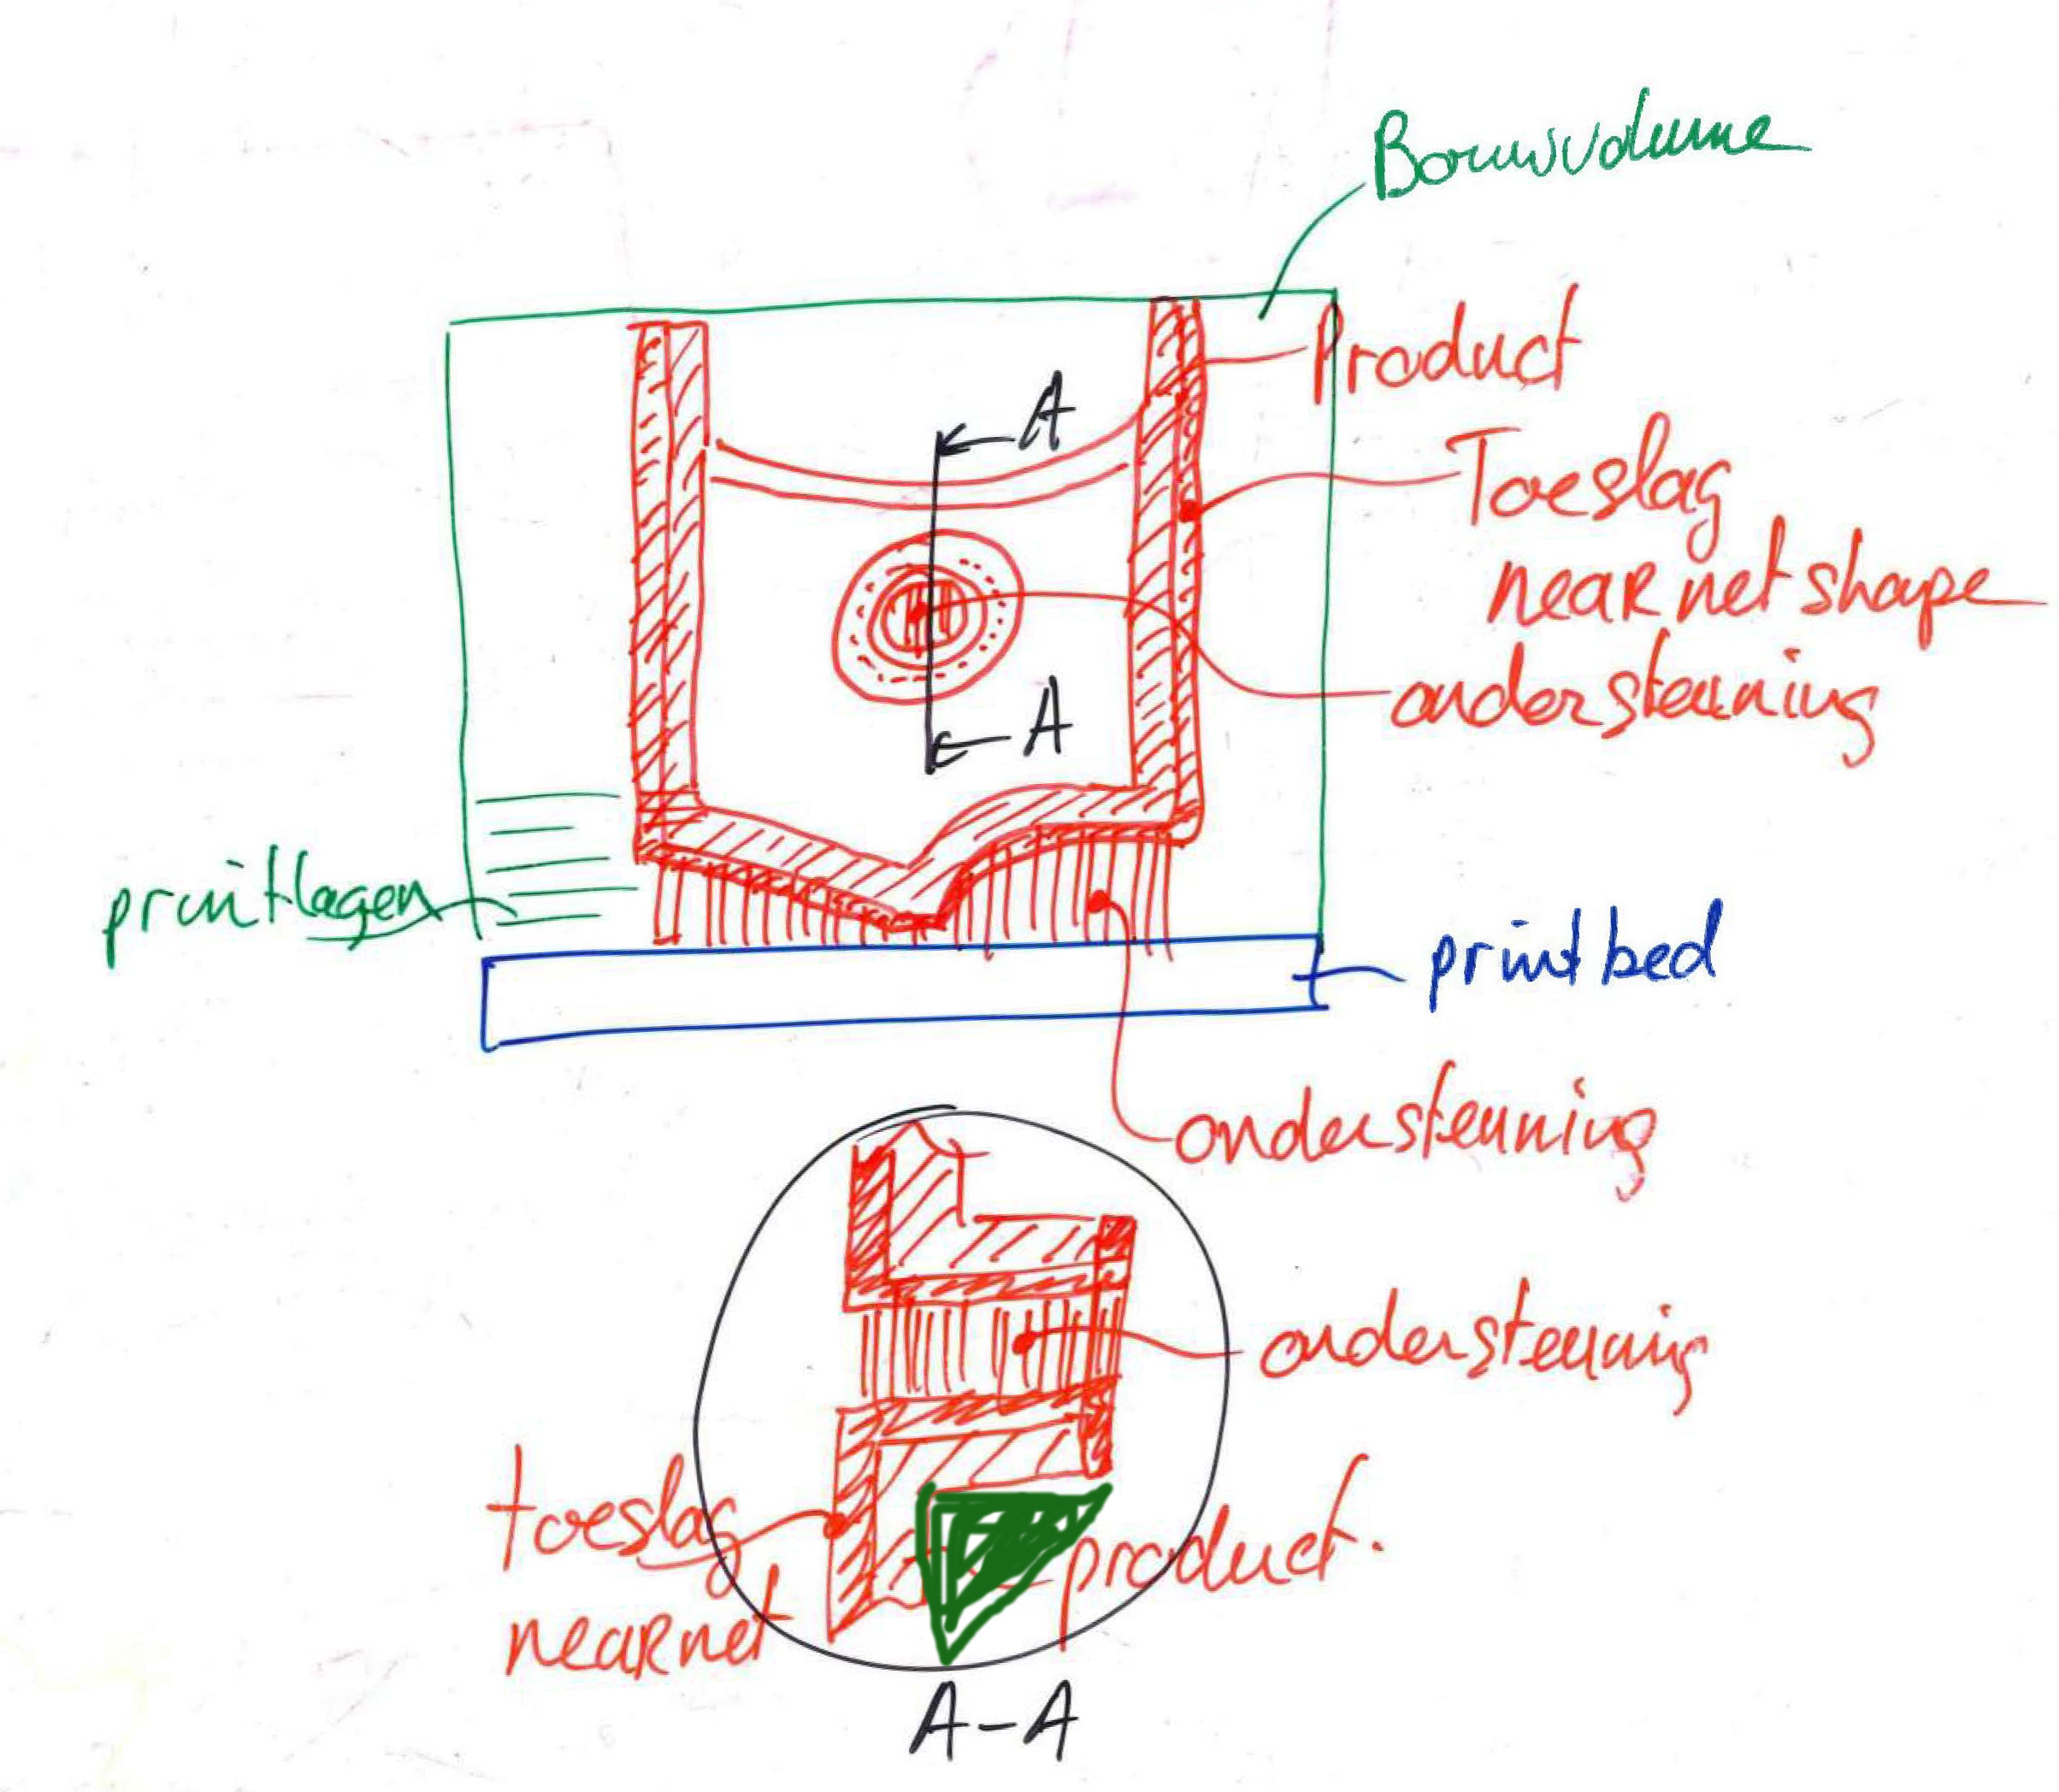 Bouwvolume
Product
A
Toeslag
near net shape
ondersteuning
A
printlagen
print bed
ondersteuning
ondersteuning
toeslag
near net
product.
A-A